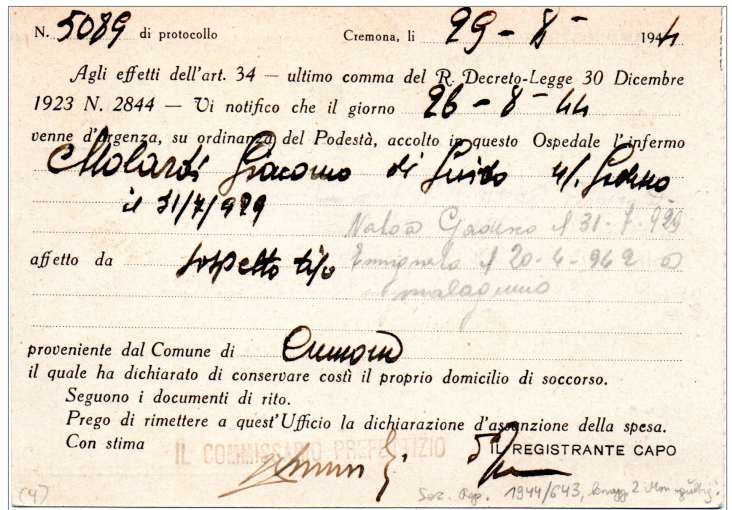 N. 5089 di protocollo Cremona, li 29 - 8 - 1944
Agli effetti dell'art. 34 — ultimo comma del R. Decreto-Legge 30 Dicembre
1923 N. 2844 — Vi notifico che il giorno 26 - 8 - 44
venne d'urgenza, su ordinanza del Podestà, accolto in questo Ospedale l'infermo
Molardi Giacomo di Guido n/.
il 31/7/929
Nato a il 31-7-929
affetto da sospetto tifo
Emigrato il 20-4-942 a
malagnino
proveniente dal Comune di Cremona
il quale ha dichiarato di conservare costì il proprio domicilio di soccorso.
Seguono i documenti di rito.
Prego di rimettere a quest'Ufficio la dichiarazione d'assunzione della spesa.
Con stima
IL COMMISSARIO PREFETTIZIO IL REGISTRANTE CAPO
(4) 1944/643, 2